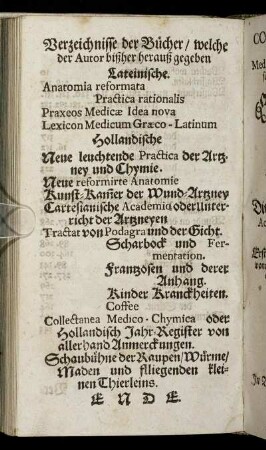 Verzeichnisse der Bücher/ welche
der Autor bißher herauß gegeben
Lateinische.
Anatomia reformata
Practica rationalis
Praxeos Medicæ Idea nova
Lexicon Medicum Græco-Latinum
Hollandische
Neue leuchtende Practica der Artz-
ney und Chymie.
Neue reformirte Anatomie
Kunst-Kam̃er der Wund-Artzney
Cartesianische Academia oder Unter-
richt der Artzneyen
Tractat von Podagra und der Gicht.
Scharbock und Fer-
mentation.
Frantzosen und derer
Anhang.
Kinder Kranckheiten.
Coffée
Collectanea Medico-Chymica oder
Hollandisch Jahr-Register von
allerhand Anmerckungen.
Schaubühne der Raupen/ Würme/
Maden und flliegenden klei-
nen Thierleins.
E N D E.